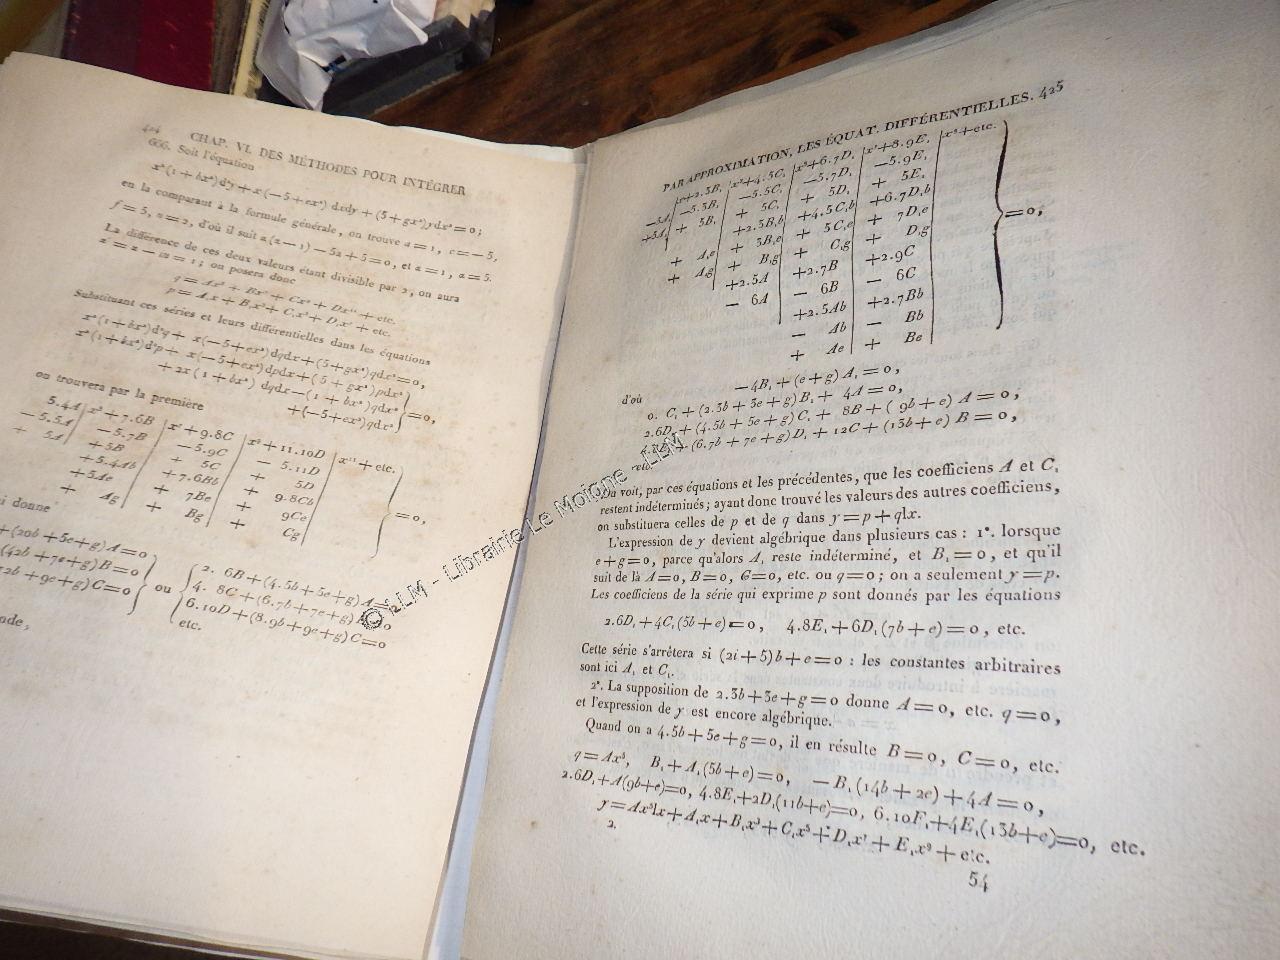 424 CHAP. VI. DES MÉTHODES POUR INTÉGRER
666. Soit l'équation
x²(1+bx²)d²y+x(−5+ex²)dxdy+(5+gx²)ydx²=0;
en la comparant à la formule générale, on trouve a=1, c=−5,
f=5, n=2, d'où il suit α(α−1)−5α+5=0, et α=1, α=5.
La différence de ces deux valeurs étant divisible par 2, on aura
on posera donc
q=Ax⁵+Bx⁷+Cx⁹+Dx¹¹+etc.
p=A₁x+B₁x³+C₁x⁵+D₁x⁷+etc.
Substituant ces séries et leurs différentielles dans les équations
x²(1+bx²)d²q+x(−5+ex²)dqdx+(5+gx²)qdx²=0,
x²(1+bx²)d²p+x(−5+ex²)dpdx+(5+gx²)pdx²
+2x(1+bx²)dqdx−(1+bx²)qdx²
+(−5+ex²)qdx² } =0,
on trouvera par la première
5.4A | x⁵+7.6B | x⁷+9.8C | x⁹+11.10D | x¹¹+etc.
−5.5A | −5.7B | −5.9C | −5.11D
+ 5A | +5B | + 5C | + 5D
+5.4Ab | +7.6Bb | + 9.8Cb
+5Ae | + 7Be | + 9Ce
+ Ag | + Bg | + Cg
} =0,
donne
+(20b+5e+g)A=0
(42b+7e+g)B=0
2b+9e+g)C=0
} ou {
2. 6B+(4.5b+5e+g)A=0
4. 8C+(6.7b+7e+g)B=0
6.10D+(8.9b+9e+g)C=0
etc.
PAR APPROXIMATION, LES ÉQUAT. DIFFÉRENTIELLES. 425
−5A₁ | x+2.3B₁ | x³+4.5C₁ | x⁵+6.7D₁ | x⁷+8.9E₁ | x⁹+etc.
+5A₁ | −5.3B₁ | −5.5C₁ | −5.7D₁ | −5.9E₁
+ 5B₁ | + 5C₁ | + 5D₁ | + 5E₁
+2.3B₁b | +4.5C₁b | +6.7D₁b
+ A₁e | + 3B₁e | + 5C₁e | + 7D₁e
+ A₁g | + B₁g | + C₁g | + D₁g
+2.5A | +2.7B | +2.9C
− 6A | − 6B | − 6C
+2.5Ab | +2.7Bb
− Ab | − Bb
+ Ae | + Be
} =0,
d'où
−4B₁+(e+g)A₁=0,
0. C₁+(2.3b+3e+g)B₁+ 4A=0,
2.6D₁+(4.5b+5e+g)C₁+ 8B+( 9b+e) A=0,
4.8E₁+(6.7b+7e+g)D₁+12C+(13b+e) B=0,
etc.
On voit, par ces équations et les précédentes, que les coefficiens A et C₁
restent indéterminés; ayant donc trouvé les valeurs des autres coefficiens,
on substituera celles de p et de q dans y=p+qlx.
L'expression de y devient algébrique dans plusieurs cas : 1°. lorsque
e+g=0, parce qu'alors A₁ reste indéterminé, et B₁=0, et qu'il
suit de là A=0, B=0, C=0, etc. ou q=0; on a seulement y=p.
Les coefficiens de la série qui exprime p sont donnés par les équations
2.6D₁+4C₁(5b+e)=0, 4.8E₁+6D₁(7b+e)=0, etc.
Cette série s'arrêtera si (2i+5)b+e=0 : les constantes arbitraires
sont ici A₁ et C₁.
2°. La supposition de 2.3b+3e+g=0 donne A=0, etc. q=0,
et l'expression de y est encore algébrique.
Quand on a 4.5b+5e+g=0, il en résulte B=0, C=0, etc.
q=Ax⁵, B₁+A₁(5b+e)=0, −B₁(14b+2e)+4A=0,
2.6D₁+A(9b+e)=0, 4.8E₁+2D₁(11b+e)=0, 6.10F₁+4E₁(13b+e)=0, etc.
y=Ax⁵lx+A₁x+B₁x³+C₁x⁵+D₁x⁷+E₁x⁹+etc.
2. 54
© LLM - Librairie Le Moigne - LLM